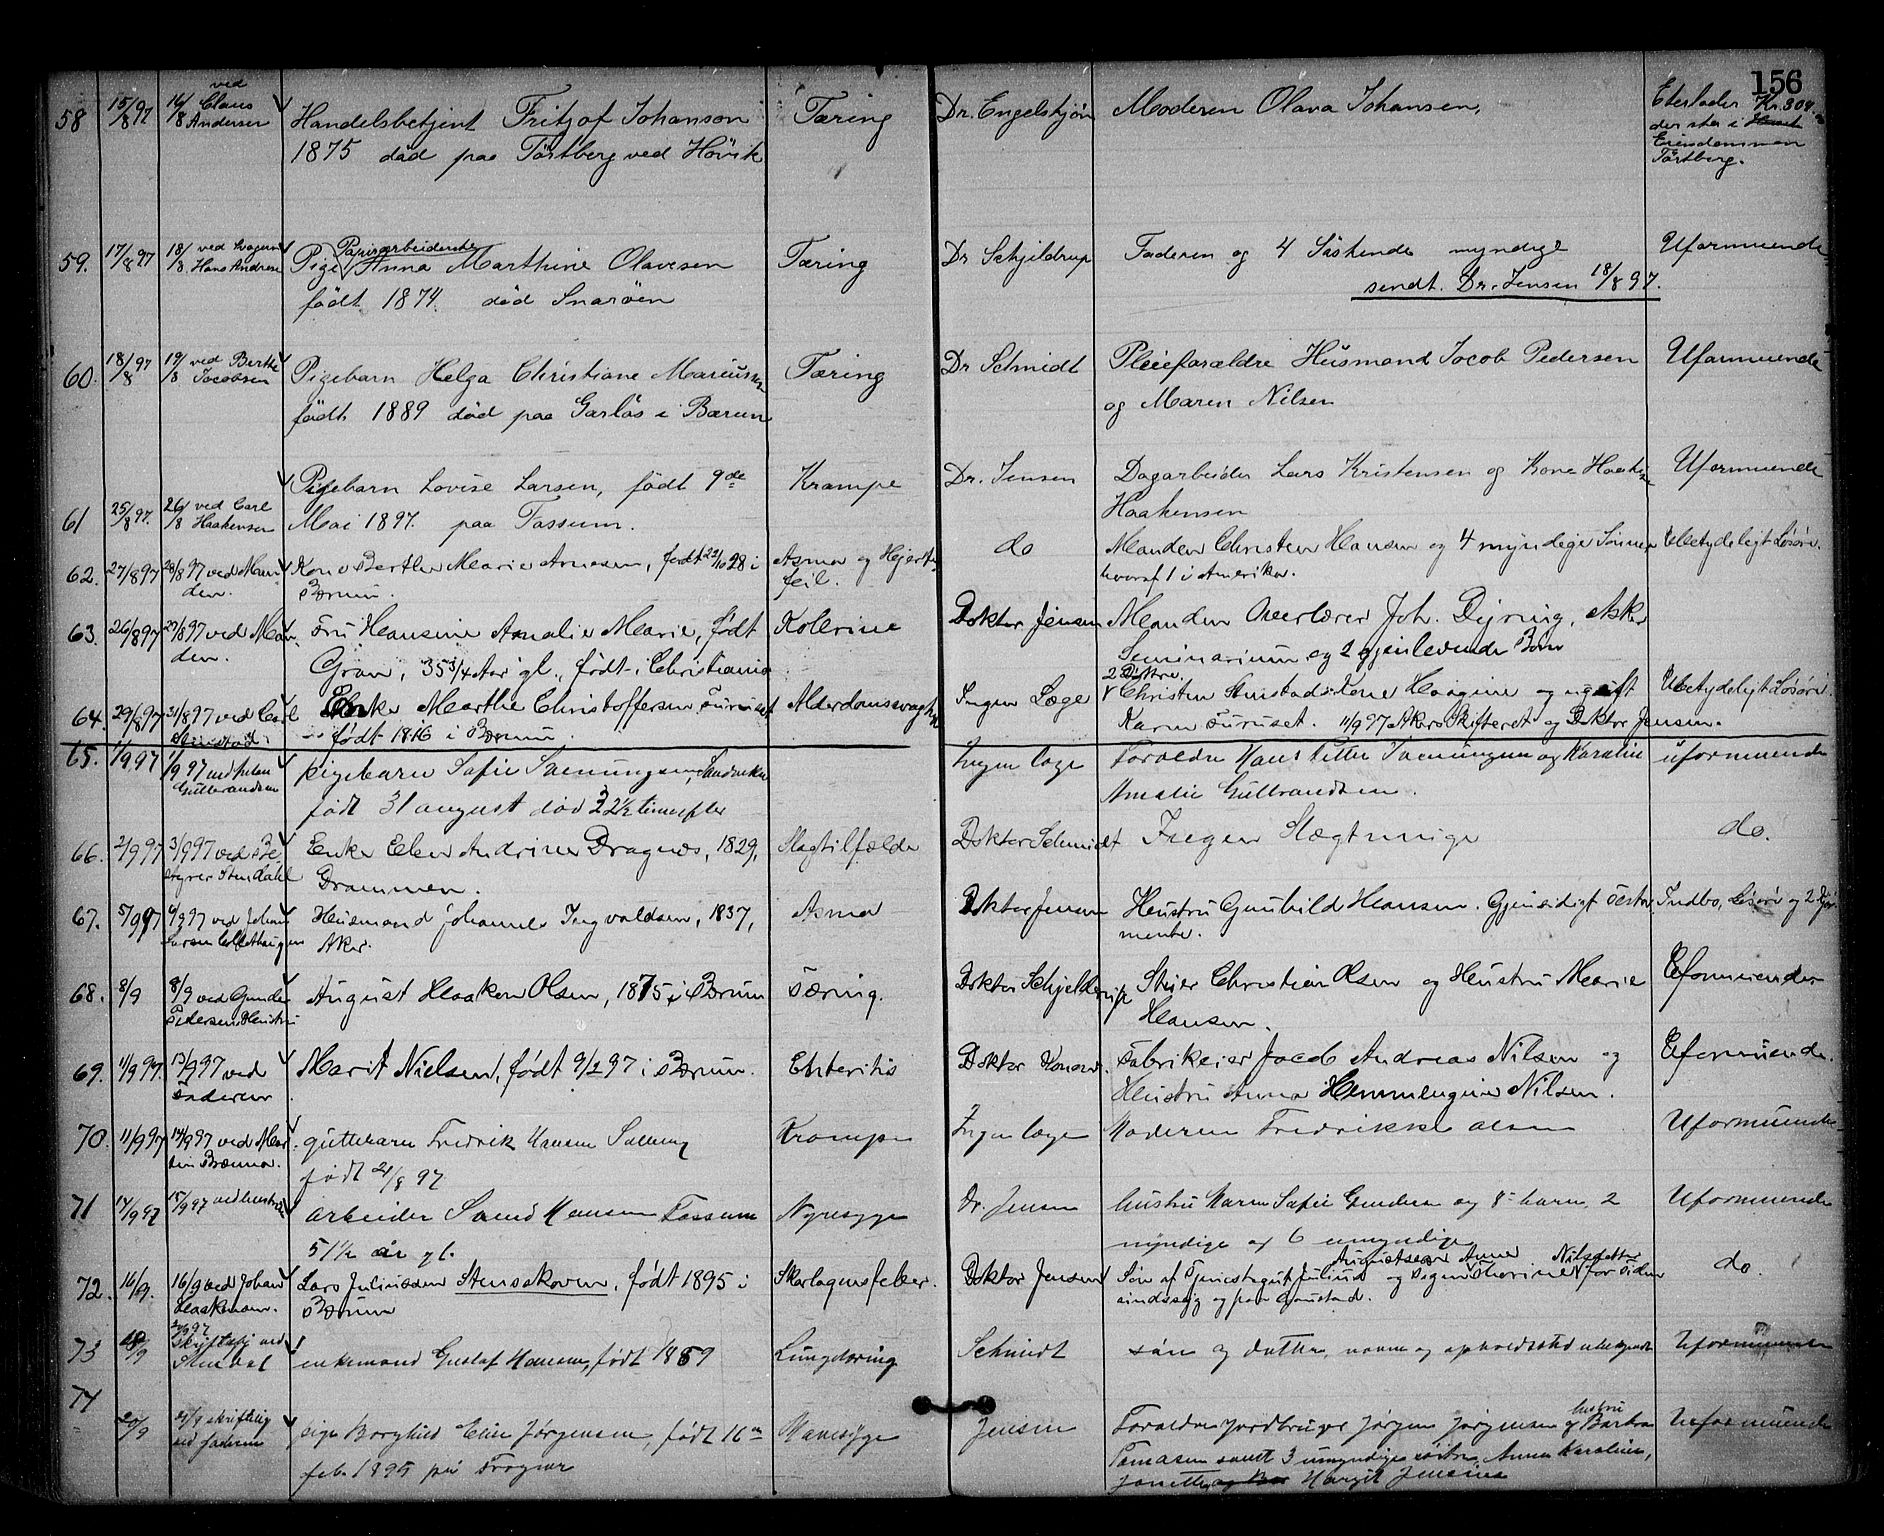 156
58 15/8 97 16/8 ved Claus Andersen Handelsbetjent Fritjof Johanson Tæring Dr. Engelskjøn Moderen Olava Johansen, Eterlader Kr. 304.
1875 død paa Törtberg ved Hövik der staa i Huset
Eiendommen
Törtberg.
59. 17/8 97 18/8 ved Hans Andrese Pige Papirarbeiderske Anna Marthine Olavesen Tæring Dr Schjeldrup Faderen og 4 Söskende myndige Uformuende
født 1874. död Snaröen sendt. Dr. Jensen 18/8 97.
60. 18/8 97 19/8 ved Berthe Jacobsen Pigebarn Helga Christiane Marcussen Tæring Dr Schmidt Pleieforældre Husmand Jocob Pedersen Uformuende
født 1889 död paa Garløs i Bærum og Maren Nilsen
Pigebarn Lovise Larsen, født 9de Krampe Dr. Jensen Dagarbeider Lars Kristensen og Kone Uformuende
61 25/8 97. 26/8 ved Carl Haakensen Mai 1897. paa Fossum. Haakensen
62. 27/8 97 28/8 97 ved Manden. Kone Berthe Marie Arnesen, født 22/10 28 i Asma og Hjertefeil. do Manden Christen Hansen og 4 myndige Sønner Ubetydeligt Løsøre.
Bærum. hvoraf 1 i Amerika.
63. 26/8 97 27/8 97 ved Manden. Fru Hansine Amalie Marie, født Kolerine Doktor Jensen Manden Overlærer Joh. Dyring, Asker
Gran, 35 3/4 Aar gl., født i Christiania Seminarium og 2 gjenlevende Børn
2 Døttre.
64. 29/8 97 31/8 97 ved Carl Stenstad. Enke Marthe Christoffersen Furuset Alderdomssvaghed Ingen Læge Christen Stenstads Kone Haagine og ugift Ubetydeligt Løsøre.
født 1816 i Bærum. Karen Furuset. 11/9 97 Akers Skifteret og Doktor Jensen.
65. 1/9 97 1/9 97 ved Gulbrandsen pigebarn Sofie Svenungsen, Sandviken Ingen læge Foreldre Hans Petter Svenungsen og Karoline uformuende
født 31 august død 22 1/2 time efter Amalie Gulbrandsen.
66. 2/9 97 3/9 97 ved Be-styrer Stendahl Enke Elen Andrine Dragnes, 1829, Slagtilfælde Doktor Schmidt Ingen Slægtninge do.
Drammen.
67. 5/9 97 6/9 97 ved Johan Larsen Husmand Johannes Ingvaldsen, 1837, Asma Doktor Jensen Hustru Gunhild Hansen. Gjensidigt Testa- Indbo, Løsøre og 2
Aker. mente.
68. 8/9 8/9 ved Gunder Pedersens Hustru August Haaken Olsen, 1875 i Bærum Tæring. Doktor Schjelderup Eier Christian Olsen og Hustru Marie Uformuende
Hansen.
69. 11/9 97. 13/9 97 ved Faderen Marit Nielsen, født 9/2 97 i Bærum. Enteritis Doktor Konow. Fabrikeier Jacob Andreas Nilsen og Uformuende.
Hustru Anna Nilsen.
70. 11/9 97 14/9 97 ved Mar-tin Brenna. guttebarn Fredrik Hansen Krampe Ingen læge Moderen Fredrikke Olsen Uformuende
født 21/8 97
71 14/9 97 15/9 97 ved hustru arbeider Hansen Fossum Nyresyge Dr. Jensen hustru Karen Sofie Gundersen og 8 barn, 2 Uformuende
51 1/2 år gl. myndige og 6 umyndige
72. 16/9. 16/9 ved Johan Haakensen. Lars Juliussen Stensskoven, født 1895 i Skarlagensfeber. Doktor Jensen Søn af Tjenestegut Julius Augustsen og Pigen Anne Thorine Nilsdatter for Tiden do.
Bærum sindssyg og paa Gaustad.
73 18/9 20/9 97 skriftelig ved Stendal enkemand Gustaf Hansen, født 1859 Lungetæring Schmidt søn og datter, navn og opholdssted ubekjendt Uformuende
74 20/9 21/9 skriftelig ved faderen pige Borghild Eline Jørgensen, født 16de Mavesyge Jensen Foreldre Jordbruger Jørgen Jørgensen og hustru Uformuende
feb. 1895 på Frogner samt 3 umyndige søstre, Anna Karoline,
Margit